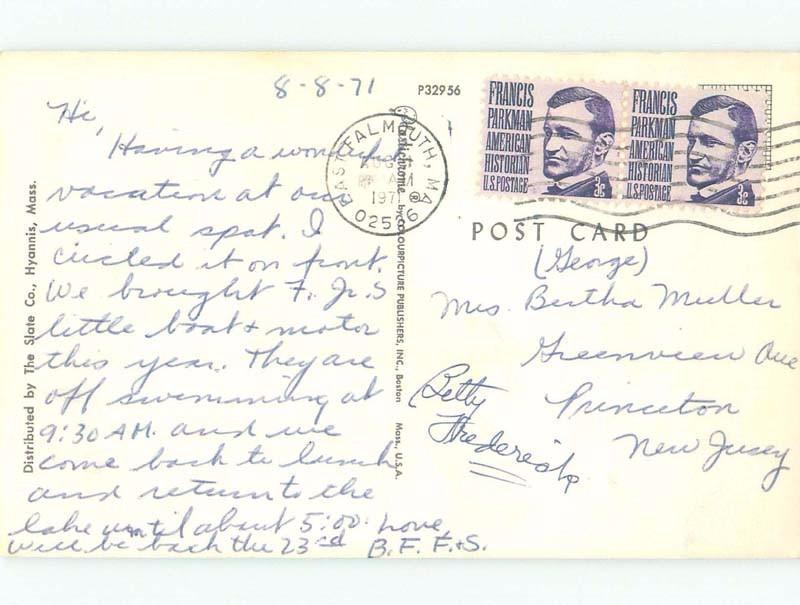 8-8-71
P32956
Hi,
Having a wonderful
vacation at our
usual spot. I
circled it on front.
We brought F. Jr.s
little boat + motor
this year. They are
off swimming at
9:30 A.M. and we
come back to lunch
and return to the
lake until about 5:00. Love,
will be back the 23rd B. F. F.+S.
Distributed by The Slate Co., Hyannis, Mass.
Plastichrome by COLOURPICTURE PUBLISHERS, INC., Boston Mass., U.S.A.
EAST FALMOUTH, MA
AUG
AM
1971
02536
FRANCIS
PARKMAN
AMERICAN
HISTORIAN
U.S. POSTAGE 3c
FRANCIS
PARKMAN
AMERICAN
HISTORIAN
U.S. POSTAGE 3c
POST CARD
(George)
Mrs. Bertha Muller
Greenview Ave
Princeton
New Jersey
Betty
Fredericks